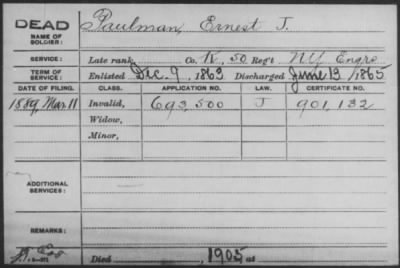 DEAD Paulman, Ernest J.
NAME OF SOLDIER:
SERVICE: Late rank, Co. K, 50 Reg't NY Engrs
TERM OF SERVICE: Enlisted Dec. 9, 1863 Discharged June 13, 1865
DATE OF FILING. CLASS. APPLICATION NO. LAW. CERTIFICATE NO.
1889, Mar. 11 Invalid, 693,500 J 901,132
Widow,
Minor,
ADDITIONAL SERVICES:
REMARKS:
Died 1905, at